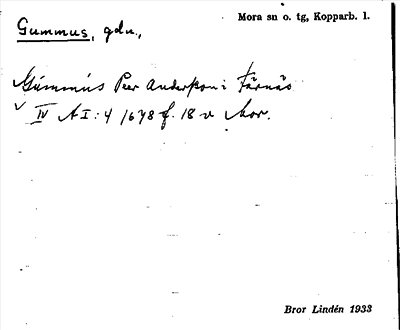 Gummus, gdn.,
Mora sn o. tg, Kopparb. l.
Gúmmús Peer Andersson i Färnäs
IV AI:4 1678 f. 18 v Mor.
Bror Lindén 1933